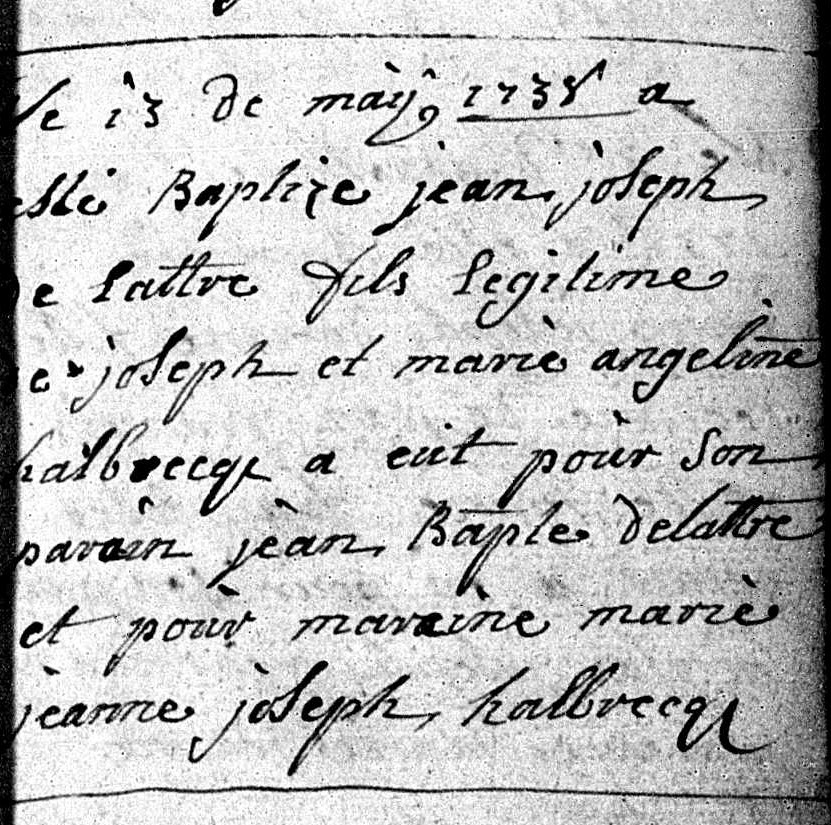 Le 13 de maÿ 1738 a
esté Baptize jean joseph
de lattre fils legitime
de joseph et marie angeline
halbrecq a eut pour son
parain jean Bapte delattre
et pour maraine marie
jeanne joseph halbrecq